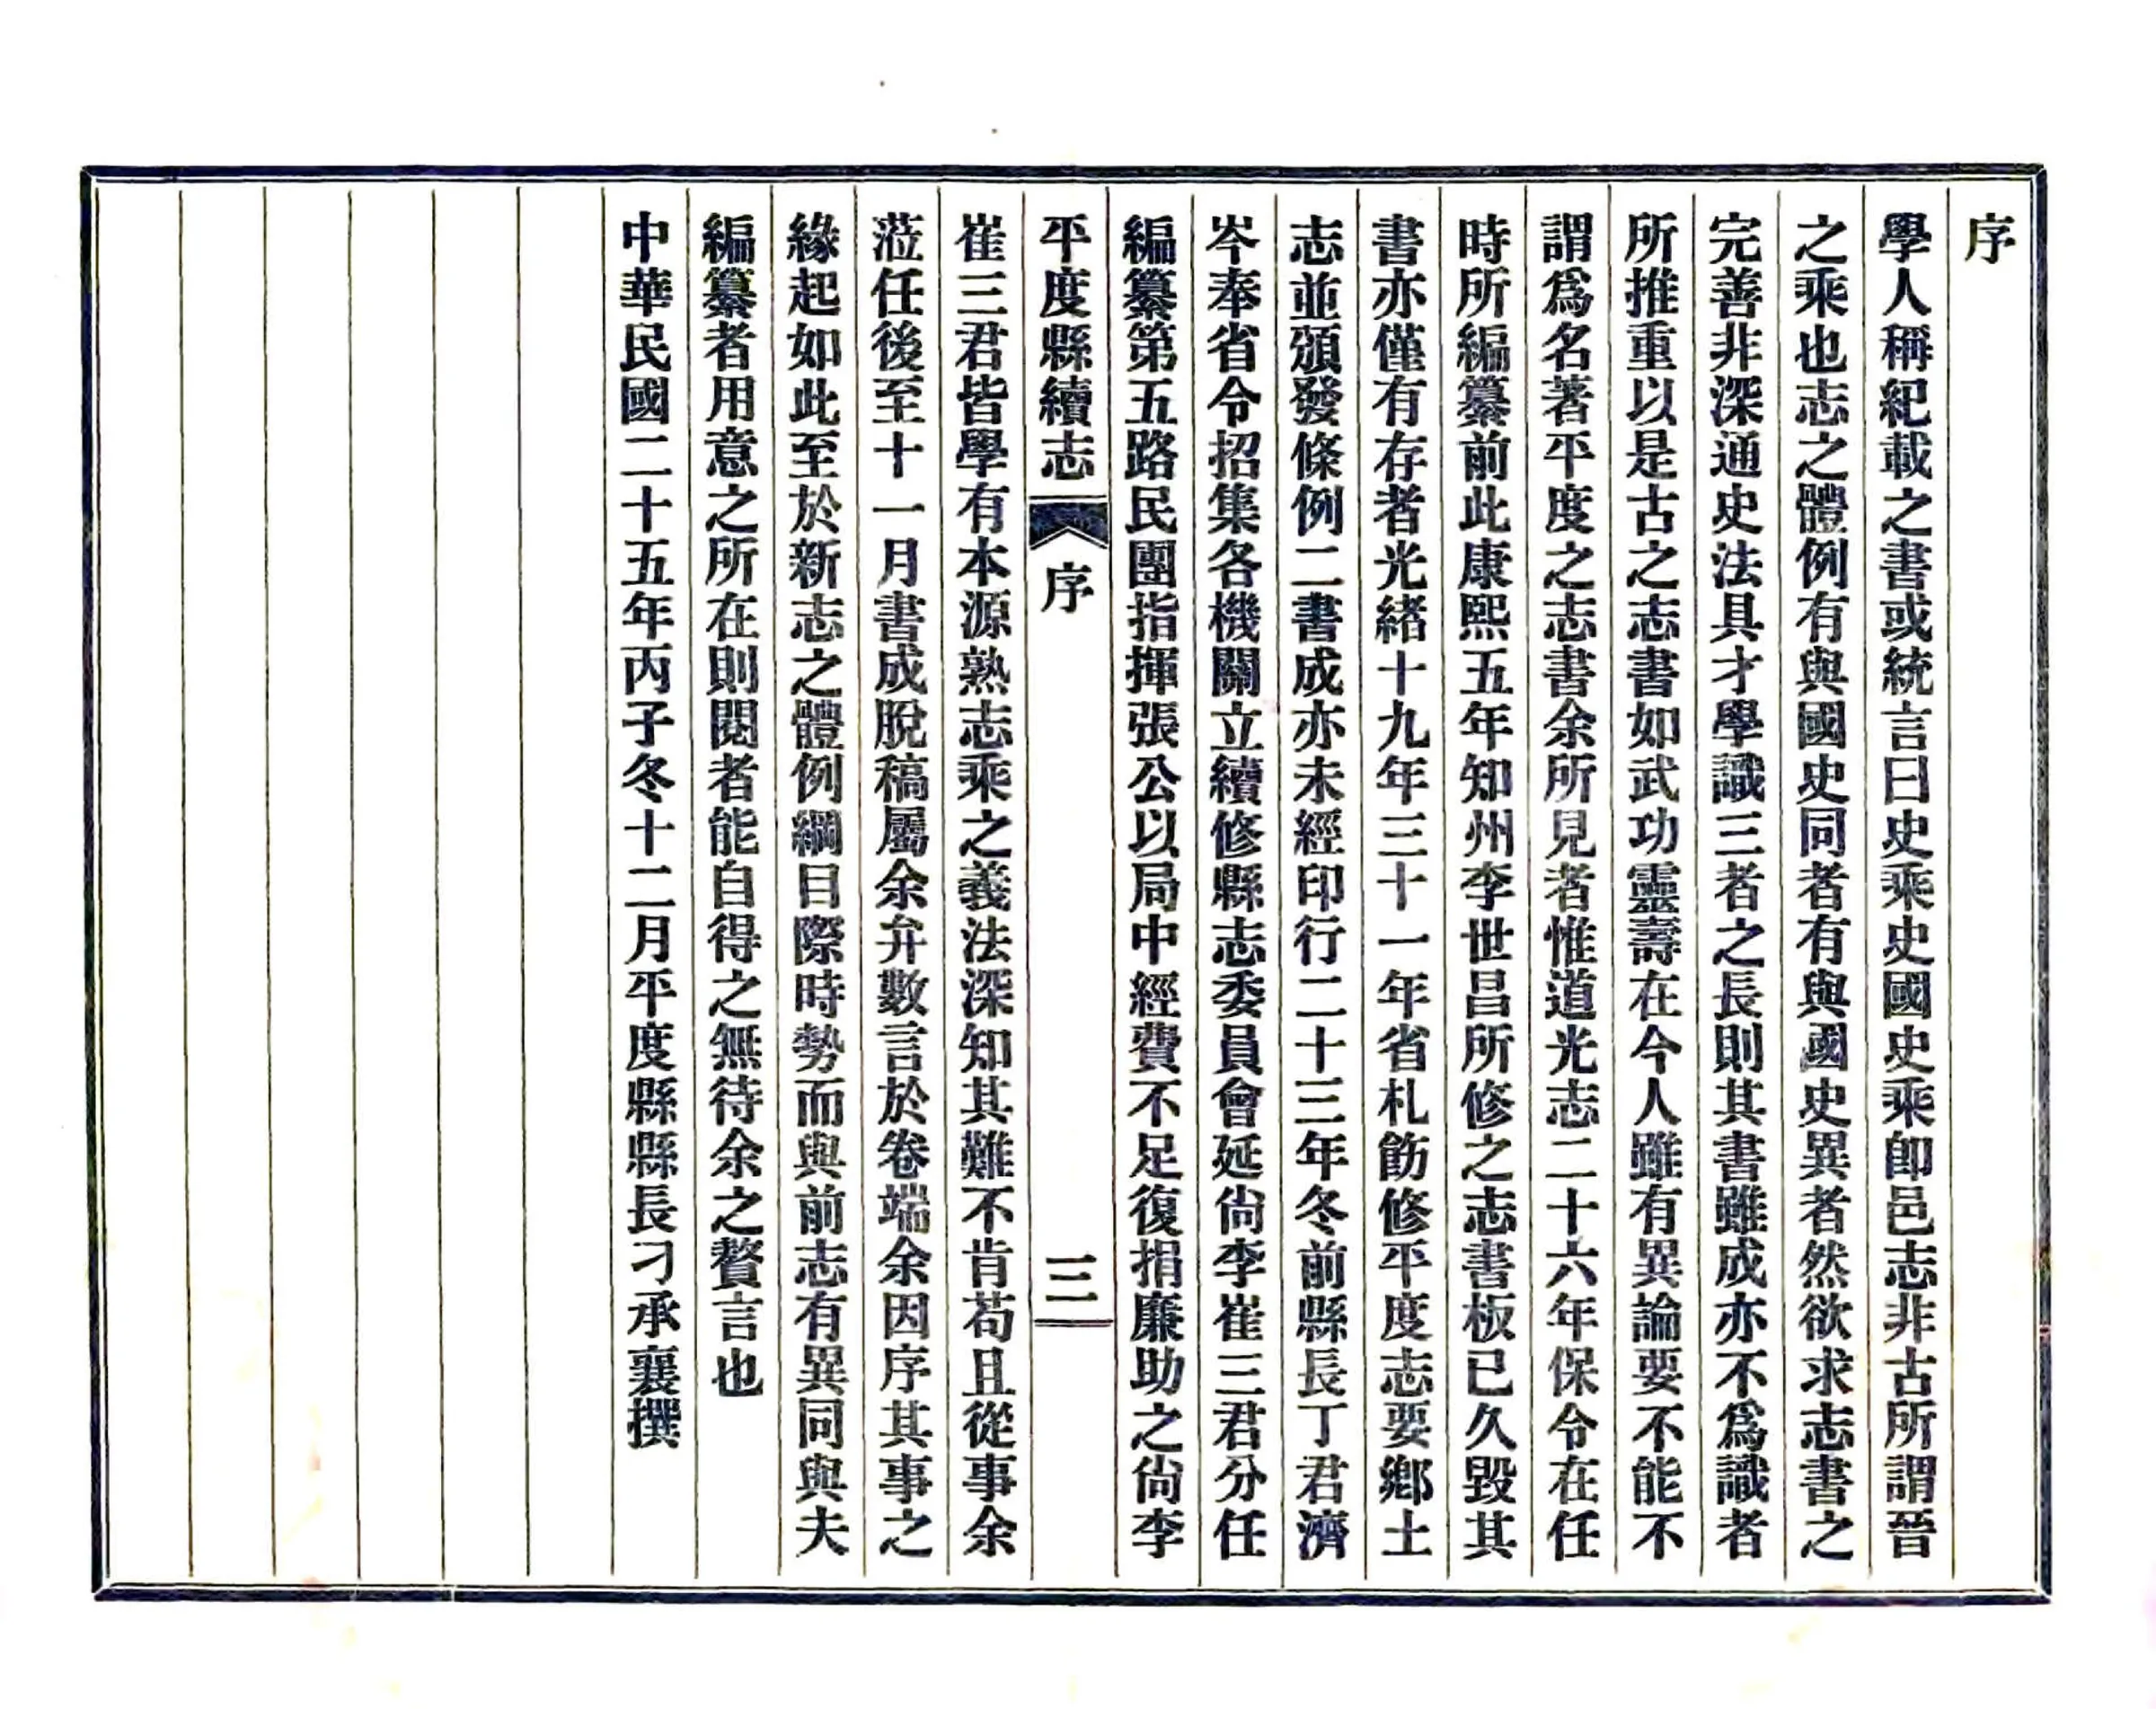 序
學人稱紀載之書或統言曰史乘史國史乘卽邑志非古所謂晉
之乘也志之體例有與國史同者有與國史異者然欲求志書之
完善非深通史法具才學識三者之長則其書雖成亦不爲識者
所推重以是古之志書如武功靈壽在今人雖有異論要不能不
謂爲名著平度之志書余所見者惟道光志二十六年保令在任
時所編纂前此康熙五年知州李世昌所修之志書板已久毀其
書亦僅有存者光緒十九年三十一年省札飭修平度志要鄉土
志並頒發條例二書成亦未經印行二十三年冬前縣長丁君濟
岑奉省令招集各機關立續修縣志委員會延尙李崔三君分任
編纂第五路民團指揮張公以局中經費不足復捐廉助之尙李
平度縣續志 序 三
崔三君皆學有本源熟志乘之義法深知其難不肯苟且從事余
蒞任後至十一月書成脫稿屬余弁數言於卷端余因序其事之
緣起如此至於新志之體例綱目際時勢而與前志有異同與夫
編纂者用意之所在則閱者能自得之無待余之贅言也
中華民國二十五年丙子冬十二月平度縣縣長刁承襄撰